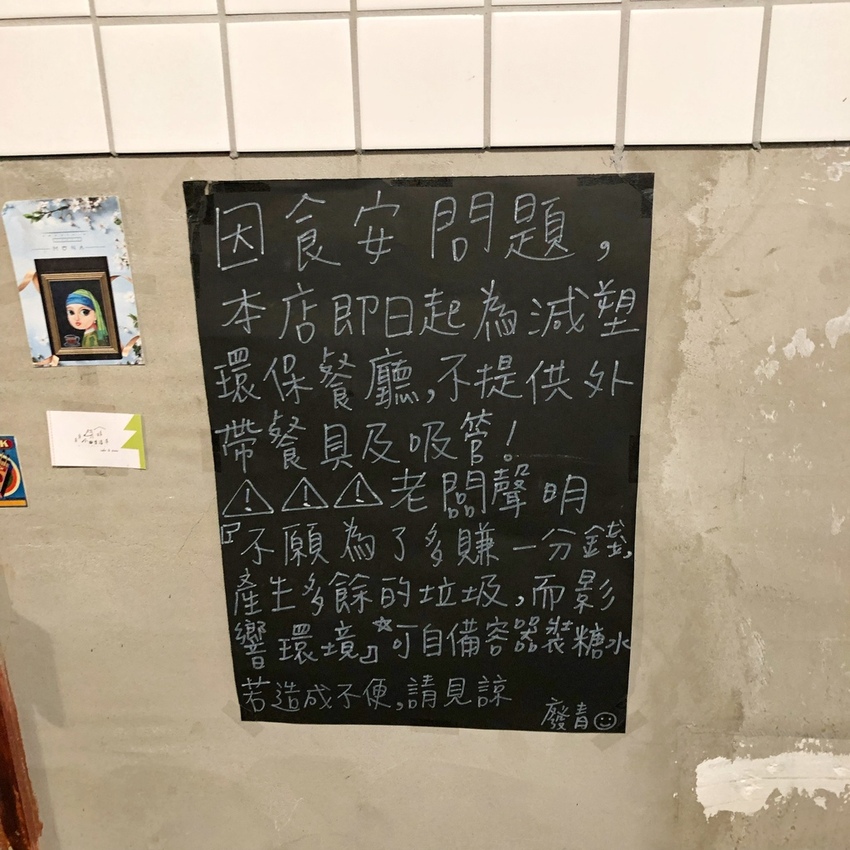 因食安問題，
本店即日起為減塑
環保餐廳，不提供外
帶餐具及吸管！
老闆聲明
『不願為了多賺一分錢，
產生多餘的垃圾，而影
響環境』*可自備容器裝糖水
若造成不便，請見諒
廢青